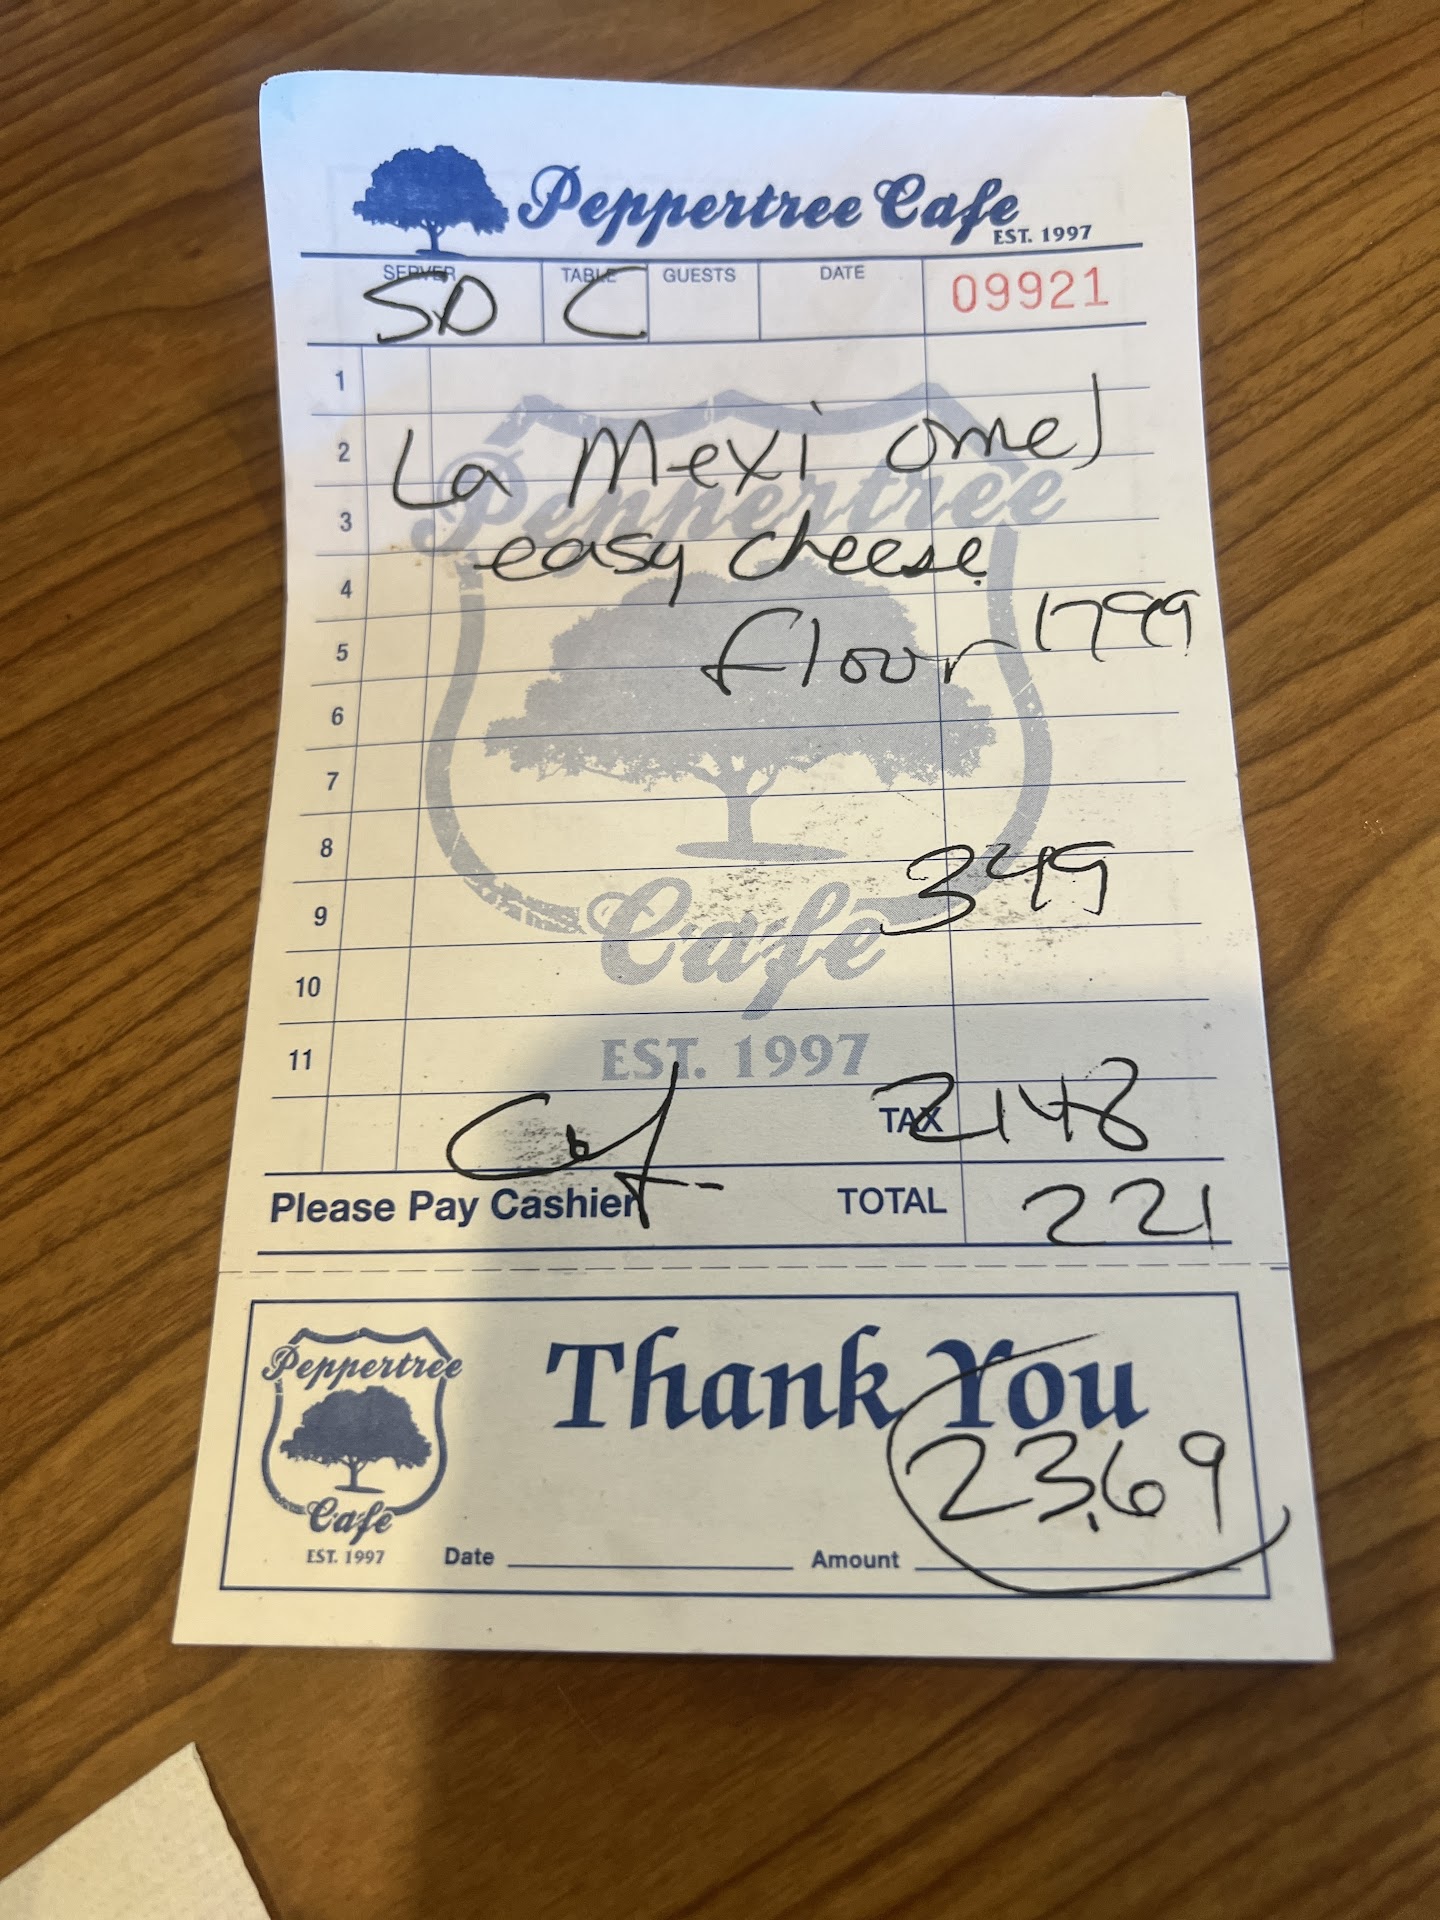 Peppertree Cafe
EST. 1997
SERVER TABLE GUESTS DATE 09921
SD C
1
2 La Mexi omel
3
easy cheese
4
flour 1799
5
6
7
8
349
9
10
11
Peppertree
Cafe
EST. 1997
TAX 2148
Please Pay Cashier TOTAL 221
Peppertree
Cafe
EST. 1997
Thank You
23.69
Date Amount